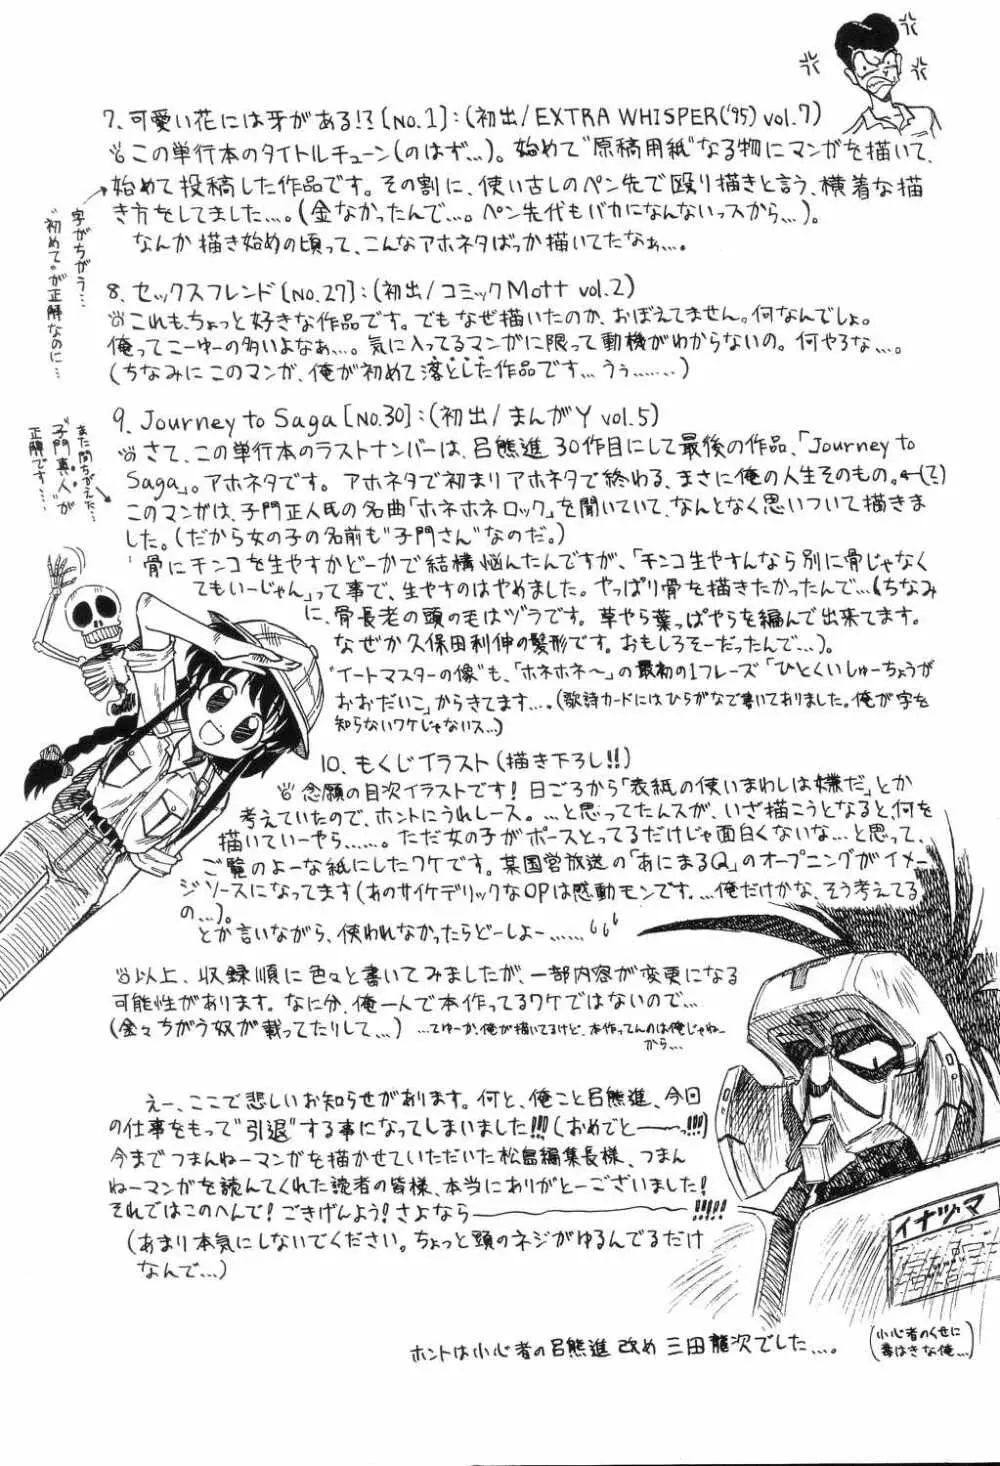 7. 可愛い花には牙がある!? [NO.1]:(初出/EXTRA WHISPER('95) vol.7)
この単行本のタイトルチューン(のはず...)。始めて"原稿用紙"なる物にマンガを描いて、
始めて投稿した作品です。その割に、使い古しのペン先で殴り描きと言う、横着な描
き方をしてました...。(金なかったんで...。ペン先代もバカになんないっスから...)。
なんか描き始めの頃って、こんなアホネタばっか描いてたなぁ...。
字がちがう...
"初めて"が正解なのに...
8. セックスフレンド[NO.27]:(初出/コミックMott vol.2)
これも、ちょっと好きな作品です。でもなぜ描いたのか、おぼえてません。何なんでしょ。
俺ってこーゆーの多いよなあ...。気に入ってるマンガに限って動機がわからないの。何やろな...。
(ちなみにこのマンガ、俺が初めて落とした作品です...うぅ.......)
9. Journey to Saga[NO.30]:(初出/まんがY vol.5)
さて、この単行本のラストナンバーは、呂熊進30作目にして最後の作品、「Journey to
Saga」。アホネタです。アホネタで初まりアホネタで終わる、まさに俺の人生そのもの。
このマンガは、子門正人氏の名曲「ホネホネロック」を聞いていて、なんとなく思いついて描きま
した。(だから女の子の名前も"子門さん"なのだ。)
また間ちがえた...
"子門真人"が
正解です...
骨にチンコを生やすかどーかで結構悩んだんですが、「チンコ生やすんなら別に骨じゃなく
てもいーじゃん」って事で、生やすのはやめました。やっぱり骨を描きたかったんで...(ちなみ
に、骨長老の頭の毛はヅラです。草やら葉っぱやらを編んで出来てます。
なぜか久保田利伸の髪形です。おもしろそーだったんで...)。
"イートマスターの像"も、「ホネホネ〜」の最初の1フレーズ「ひとくいしゅーちょうが
おおだいこ」からきてます...。(歌詩カードにはひらがなで書いてありました。俺が字を
知らないワケじゃないス...)
10. もくじイラスト(描き下ろし!!)
念願の目次イラストです!日ごろから「表紙の使いまわしは嫌だ」とか
考えていたので、ホントにうれしース。...と思ってたんスが、いざ描こうとなると、何を
描いていーやら......。ただ女の子がポースとってるだけじゃ面白くないな...と思って、
ご覧のよーな紙にしたワケです。某国営放送の「あにまるQ」のオープニングがイメー
ジソースになってます(あのサイケデリックなOPは感動モンです。...俺だけかな、そう考えてる
の...)。
とか言いながら、使われなかったらどーしよー......
以上、収録順に色々と書いてみましたが、一部内容が変更になる
可能性があります。なに分、俺一人で本作ってるワケではないので...
(全々ちがう奴が載ってたりして...) ...てゆーか、俺が描いてるけど、本作ってんのは俺じゃねー
から...
えー、ここで悲しいお知らせがあります。何と、俺こと呂熊進、今回
の仕事をもって"引退"する事になってしまいました!!!(おめでとーーっ!!!)
今までつまんねーマンガを描かせていただいた松島編集長様、つまん
ねーマンガを読んでくれた読者の皆様、本当にありがとーございました!
それではこのへんで!ごきげんよう!さよならーーーーーー!!!!!
(あまり本気にしないでください。ちょっと頭のネジがゆるんでるだけ
なんで...)
イナヅマ
ホントは小心者の呂熊進 改め 三田龍次でした...。
(小心者のくせに
毒はきな俺...)